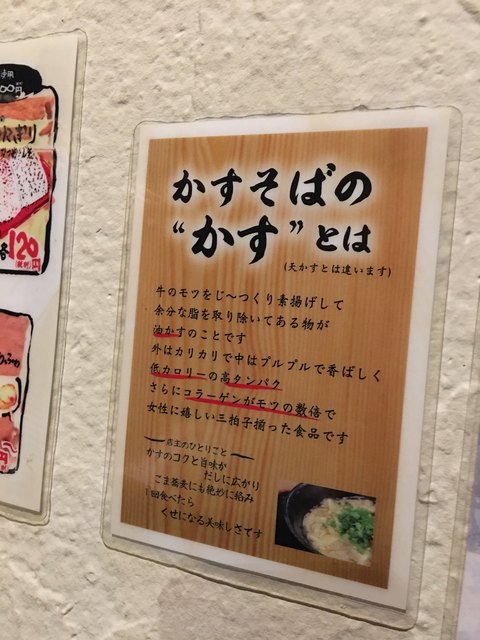 00円
にぎり
各120円
(税別)
円
かすそばの
“かす”とは
(天かすとは違います)
牛のモツをじ〜つくり素揚げして
余分な脂を取り除いてある物が
油かすのことです
外はカリカリで中はプルプルで香ばしく
低カロリーの高タンパク
さらにコラーゲンがモツの数倍で
女性に嬉しい三拍子揃った食品です
店主のひとりごと
かすのコクと旨味が
だしに広がり
ごま蕎麦にも絶妙に絡み
1回食べたら
くせになる美味しさです